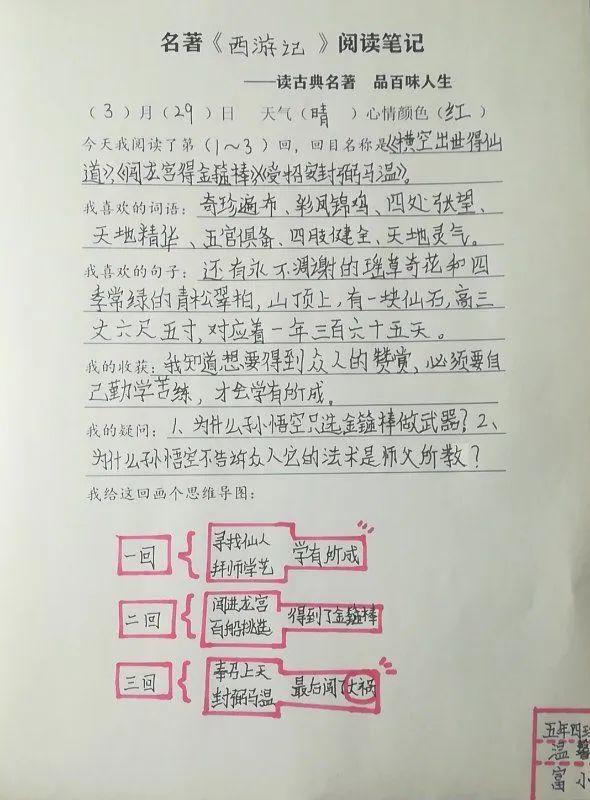 名著《西游记》阅读笔记
——读古典名著 品百味人生
（3）月（29）日 天气（晴 ）心情颜色（红）
今天我阅读了第（1～3）回，回目名称是《横空出世得仙
道》、《闯龙宫得金箍棒》、《受招安封弼马温》。
我喜欢的词语：奇珍遍布、彩凤锦鸡、四处张望、
天地精华、五官俱备、四肢健全、天地灵气。
我喜欢的句子：还有永不凋谢的瑶草奇花和四
季常绿的青松翠柏，山顶上，有一块仙石，高三
丈六尺五寸，对应着一年三百六十五天。
我的收获：我知道，想要得到众人的赞赏，必须要自
己勤学苦练，才会学有所成。
我的疑问：1、为什么孙悟空只选金箍棒做武器？2、
为什么孙悟空不告诉众人它的法术是师父所教？
我给这回画个思维导图：
一回 寻找仙人 拜师学艺 学有所成
二回 闯进龙宫 百般挑选 得到了金箍棒
三回 奉召上天 封弼马温 最后闯了大祸
五年四
温
富 小